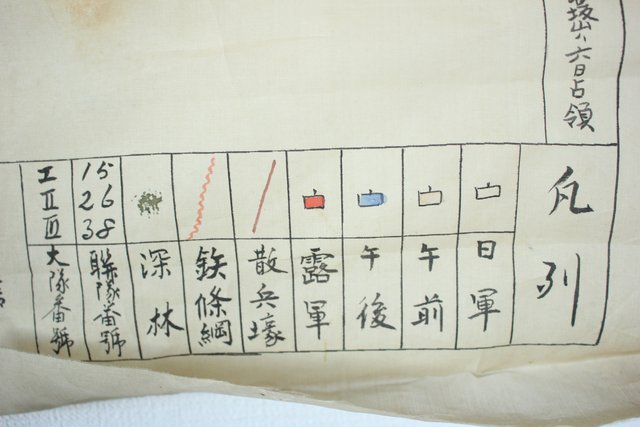 ハ六日占領
凡列
日軍
午前
午後
露軍
散兵壕
鉄條綱
深林
15
26
38
聯隊番號
I
II
III
大隊番號